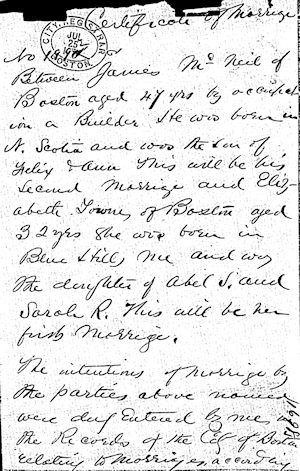 Certificate of Marrige
CITY REGISTRAR
JUL
25
BOSTON
No
Between James Mc Neil of
Boston aged 47 yrs by occupat
ion a Builder He was born in
N. Scotia and was the son of
Felix & Ann This will be his
Second Marrige and Eliz-
abeth Towns of Boston aged
32 yrs She was born in
Blue Hills Me and was
the daughter of Abel S. and
Sarah R. This will be her
first Marrige.
The intentions of Marrige by
the parties above named
were duly Entered by me in
the Records of the City of Boston
relating to Marriges according